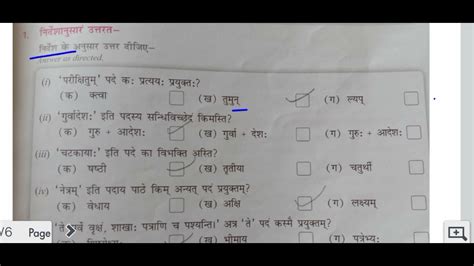 1. निर्देशानुसार उत्तरत–
निर्देश के अनुसार उत्तर दीजिए–
Answer as directed.
(i) 'परीक्षितुम्' पदे कः प्रत्ययः प्रयुक्तः?
(क) क्त्वा (ख) तुमुन् (ग) ल्यप्
(ii) 'गुर्वादेशः' इति पदस्य सन्धिविच्छेदं किमस्ति?
(क) गुरु + आदेशः (ख) गुर्वा + देशः (ग) गुरुः + आदेशः
(iii) 'चटकायाः' इति पदे का विभक्ति अस्ति?
(क) षष्ठी (ख) तृतीया (ग) चतुर्थी
(iv) 'नेत्रम्' इति पदाय पाठे किम् अन्यत् पदं प्रयुक्तम्?
(क) वेधाय (ख) अक्षि (ग) लक्ष्यम्
'ते सर्वे वृक्षं, शाखाः पत्राणि च पश्यन्ति।' अत्र 'ते' पदं कस्मै प्रयुक्तम्?
(ख) भीमाय (ग) पत्रेभ्यः
/6 Page